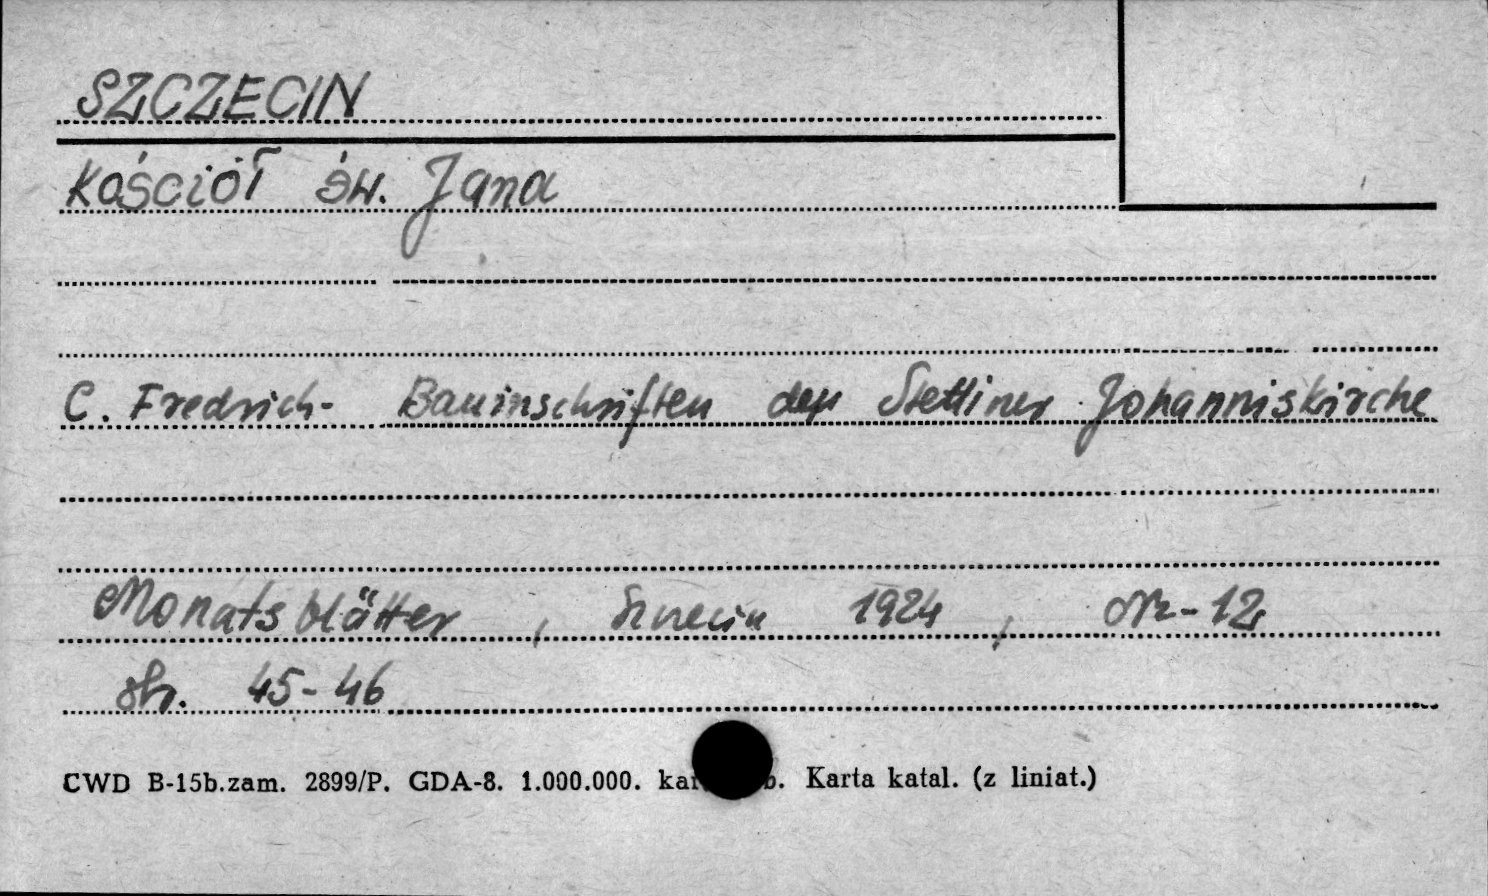 SZCZECIN
Kościół św. Jana
C. Fredrich- Bauinschriften der Stettiner Johanniskirche
Monatsblätter , Szczecin 1924 , Nr-12
str. 45-46
CWD B-15b.zam. 2899/P. GDA-8. 1.000.000. Karta katal. (z liniat.)